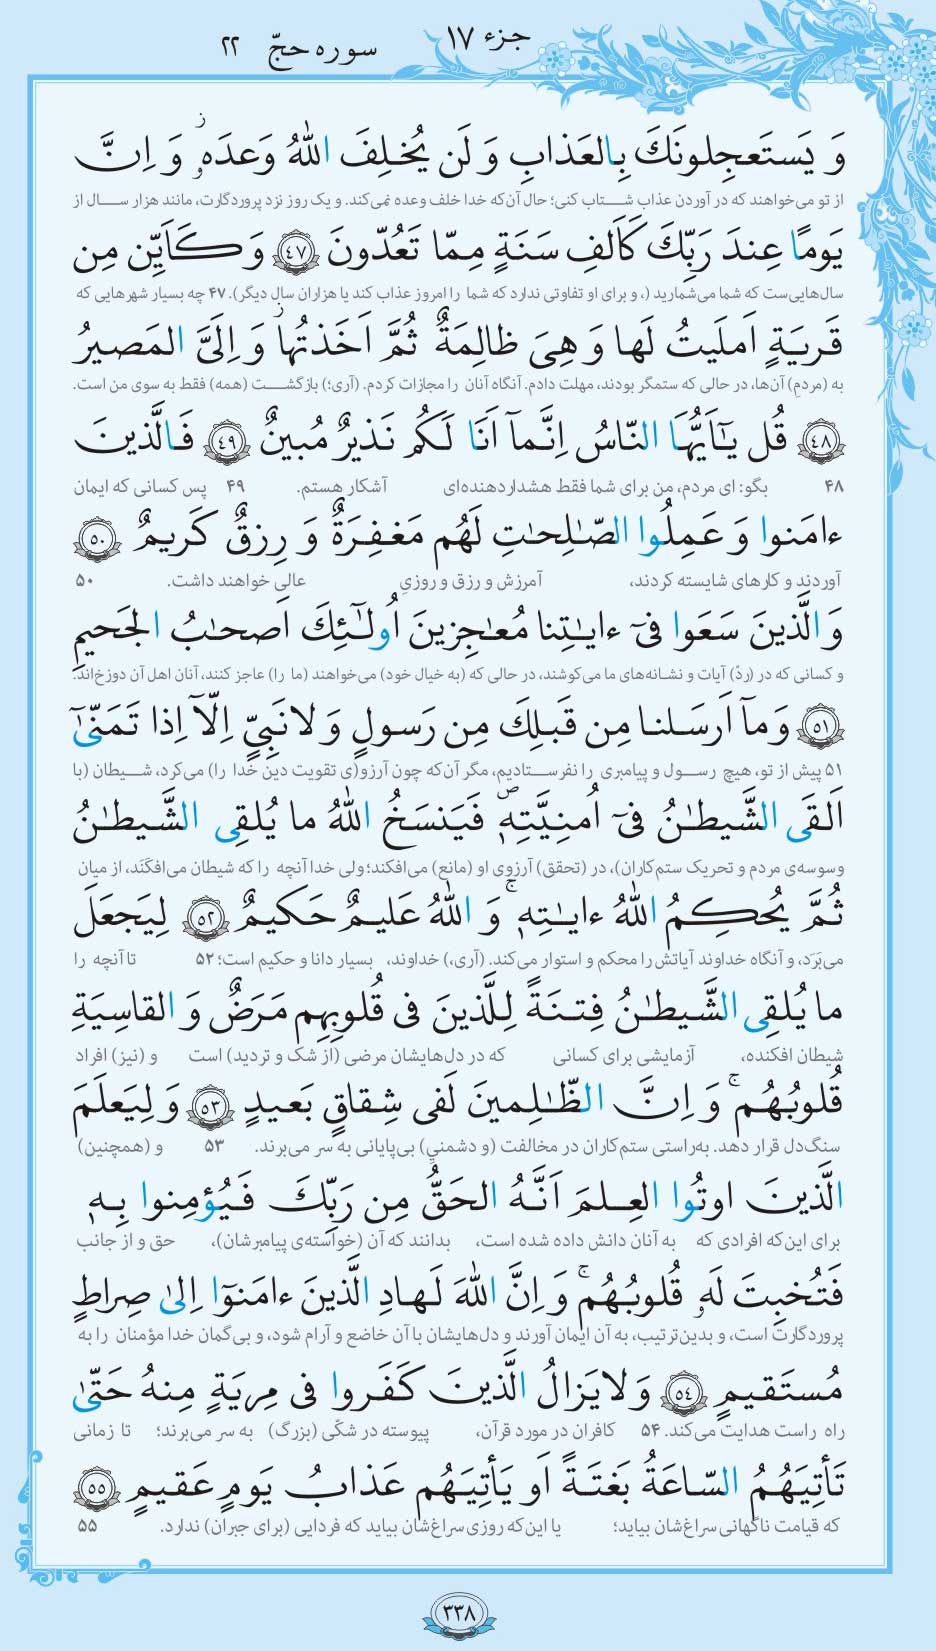 جزء ۱۷
سوره حجّ ۲۲
وَ يَستَعجِلونَكَ بِالعَذابِ وَ لَن يُخلِفَ اللهُ وَعدَهٗ ۚ وَ اِنَّ
از تو می‌خواهند که در آوردن عذاب شتاب کنی؛ حال آن‌که خدا خلف وعده نمی‌کند. و یک روز نزد پروردگارت، مانند هزار سال از
يَومًا عِندَ رَبِّكَ كَاَلفِ سَنَةٍ مِمّا تَعُدّونَ ﴿۴۷﴾ وَ كَاَيِّن مِن
سال‌هایی‌ست که شما می‌شمارید (، و برای او تفاوتی ندارد که شما را امروز عذاب کند یا هزاران سال دیگر). ۴۷ چه بسیار شهرهایی که
قَريَةٍ اَملَيتُ لَها وَ هِىَ ظالِمَةٌ ثُمَّ اَخَذتُها وَ اِلَىَّ المَصيرُ
به (مردم) آن‌ها، در حالی که ستمگر بودند، مهلت دادم. آنگاه آنان را مجازات کردم. (آری؛) بازگشت (همه) فقط به سوی من است.
﴿۴۸﴾ قُل يٰٓاَيُّهَا النّاسُ اِنَّمآ اَنَا لَكُم نَذيرٌ مُبينٌ ﴿۴۹﴾ فَالَّذينَ
۴۸ بگو: ای مردم، من برای شما فقط هشداردهنده‌ای آشکار هستم. ۴۹ پس کسانی که ایمان
ءامَنوا وَ عَمِلُوا الصّٰلِحٰتِ لَهُم مَغفِرَةٌ وَ رِزقٌ كَريمٌ ﴿۵۰﴾
آوردند و کارهای شایسته کردند، آمرزش و رزق و روزیِ عالی خواهند داشت. ۵۰
وَالَّذينَ سَعَوا فىٓ ءايٰتِنا مُعٰجِزينَ اُولٰٓئِكَ اَصحٰبُ الجَحيمِ
و کسانی که در (ردّ) آیات و نشانه‌های ما می‌کوشند، در حالی که (به خیال خود) می‌خواهند (ما را) عاجز کنند، آنان اهل آن دوزخ‌اند.
﴿۵۱﴾ وَ مآ اَرسَلنا مِن قَبلِكَ مِن رَسولٍ وَ لا نَبِىٍّ اِلّآ اِذا تَمَنّىٰٓ
۵۱ پیش از تو، هیچ رسول و پیامبری را نفرستادیم، مگر آن‌که چون آرزو(ی تقویت دین خدا را) می‌کرد، شیطان (با
اَلقَى الشَّيطٰنُ فىٓ اُمنِيَّتِهٖ ۖ فَيَنسَخُ اللهُ ما يُلقِى الشَّيطٰنُ
وسوسه‌ی مردم و تحریک ستم‌کاران)، در (تحقق) آرزوی او (مانع) می‌افکند؛ ولی خدا آنچه را که شیطان می‌افکَند، از میان
ثُمَّ يُحكِمُ اللهُ ءايٰتِهٖ ۚ وَ اللهُ عَليمٌ حَكيمٌ ﴿۵۲﴾ لِيَجعَلَ
می‌بَرَد، و آنگاه خداوند آیاتش را محکم و استوار می‌کند. (آری،) خداوند، بسیار دانا و حکیم است؛ ۵۲ تا آنچه را
ما يُلقِى الشَّيطٰنُ فِتنَةً لِلَّذينَ فى قُلوبِهِم مَرَضٌ وَ القاسِيَةِ
شیطان افکنده، آزمایشی برای کسانی که در دل‌هایشان مرضی (از شک و تردید) است و (نیز) افراد
قُلوبُهُم ۚ وَ اِنَّ الظّٰلِمينَ لَفى شِقاقٍ بَعيدٍ ﴿۵۳﴾ وَ لِيَعلَمَ
سنگ‌دل قرار دهد. به‌راستی ستم‌کاران در مخالفت (و دشمنیِ) بی‌پایانی به سر می‌برند. ۵۳ و (همچنین)
الَّذينَ اوتُوا العِلمَ اَنَّهُ الحَقُّ مِن رَبِّكَ فَيُؤمِنوا بِهٖ
برای این‌که افرادی که به آنان دانش داده شده است، بدانند که آن (خواسته‌ی پیامبرشان)، حق و از جانب
فَتُخبِتَ لَهٗ قُلوبُهُم ۚ وَ اِنَّ اللهَ لَهادِ الَّذينَ ءامَنوٓا اِلىٰ صِراطٍ
پروردگارت است، و بدین‌ترتیب، به آن ایمان آورند و دل‌هایشان با آن خاضع و آرام شود، و بی‌گمان خدا مؤمنان را به
مُستَقيمٍ ﴿۵۴﴾ وَ لا يَزالُ الَّذينَ كَفَروا فى مِريَةٍ مِنهُ حَتّىٰ
راه راست هدایت می‌کند. ۵۴ کافران در مورد قرآن، پیوسته در شکّی (بزرگ) به سر می‌برند؛ تا زمانی
تَأتِيَهُمُ السّاعَةُ بَغتَةً اَو يَأتِيَهُم عَذابُ يَومٍ عَقيمٍ ﴿۵۵﴾
که قیامت ناگهانی سراغ‌شان بیاید؛ یا این‌که روزی سراغ‌شان بیاید که فردایی (برای جبران) ندارد. ۵۵
۳۳۸